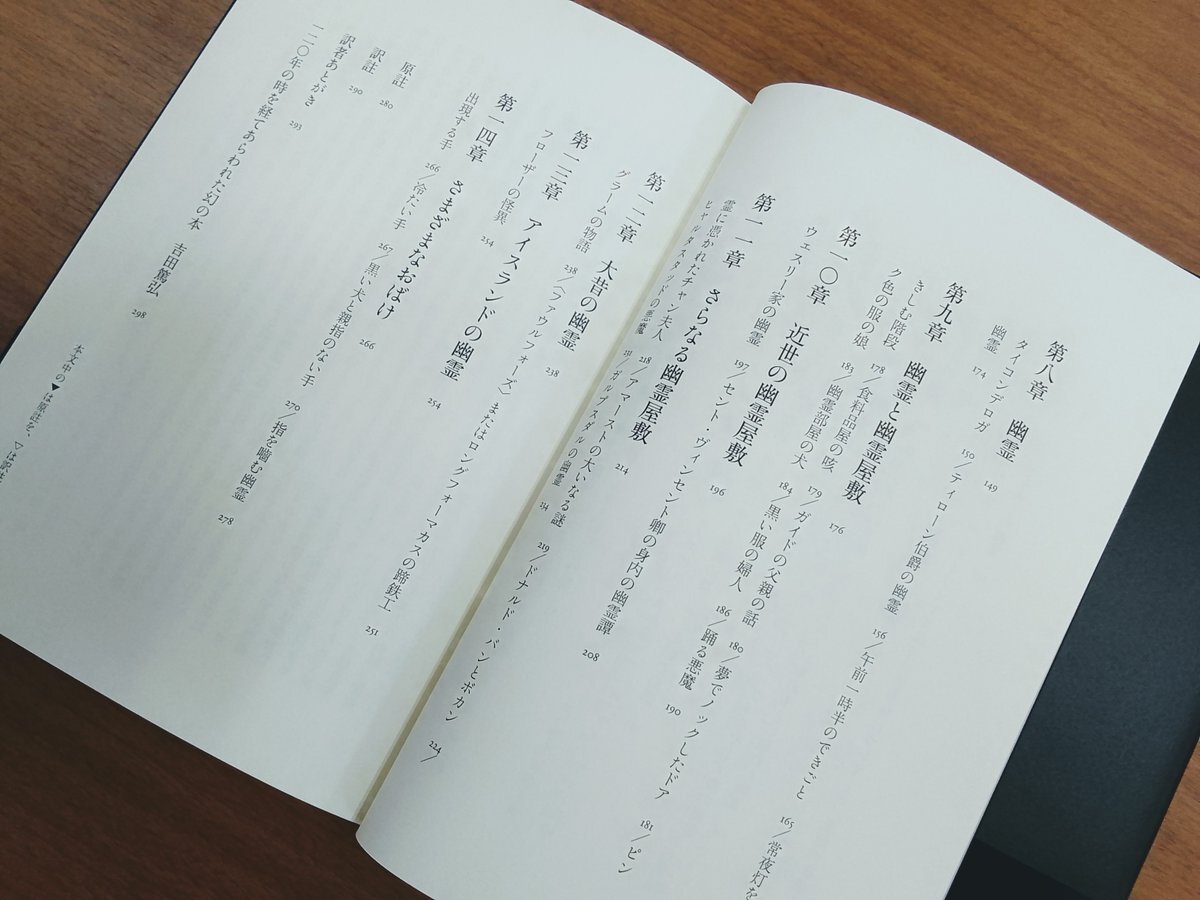 第八章　幽霊　149
タイコンデロガ　150／ティローン伯爵の幽霊　156／午前一時半のできごと　165／常夜灯を
幽霊　174
第九章　幽霊と幽霊屋敷　176
きしむ階段　178／食料品屋の咳　179／ガイドの父親の話　180／夢でノックしたドア　181／ピン
ク色の服の娘　183／幽霊部屋の犬　184／黒い服の婦人　186／踊る悪魔　190
第一〇章　近世の幽霊屋敷　196
ウェスリー家の幽霊　197／セント・ヴィンセント卿の身内の幽霊譚　208
第一一章　さらなる幽霊屋敷　214
霊に憑かれたチャン夫人　218／アマーストの大いなる謎　219／ドナルド・バンとボカン　224／
ヒャルタスタッドの悪魔　231／ガルプスダルの幽霊　234
第一二章　大昔の幽霊　238
グラームの物語　238／〈ファウルフォーズ〉またはロングフォーマカスの蹄鉄工　251
第一三章　アイスランドの幽霊　254
フローザーの怪異　254
第一四章　さまざまなおばけ　266
出現する手　266／冷たい手　267／黒い犬と親指のない手　270／指を嚙む幽霊　278
原註　280
訳註　290
訳者あとがき　293
一二〇年の時を経てあらわれた幻の本　吉田篤弘　298
本文中の▼は原註を、▽は訳註